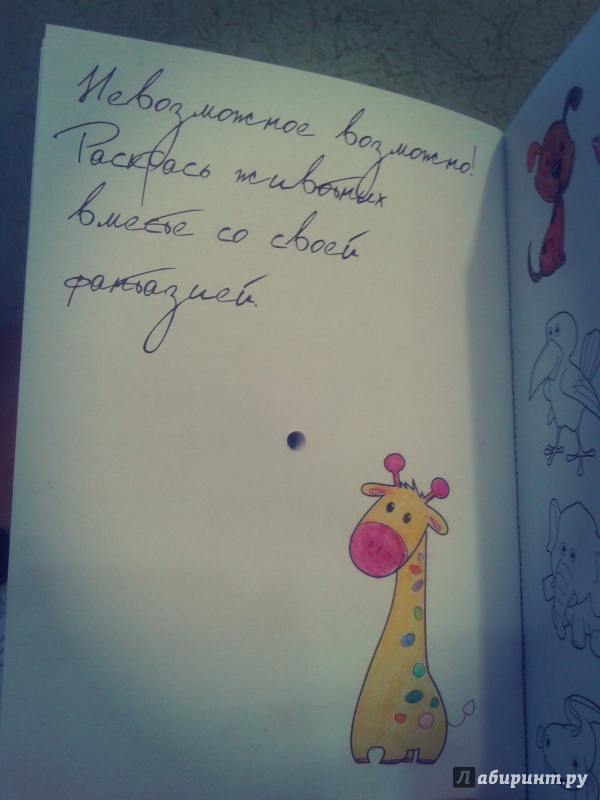 Невозможное возможно!
Раскрась животных
вместе со своей
фантазией.
Лабиринт.ру